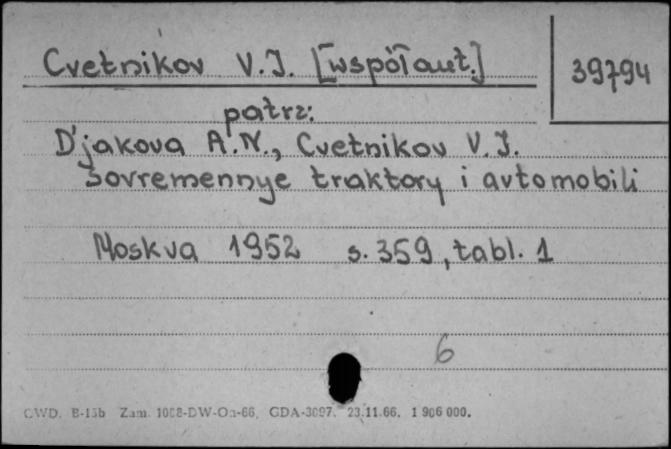 Cvetnikov V.I. [współaut.]
39794
patrz:
D'jakova A.N., Cvetnikov V.I.
Sovremennye traktory i avtomobili
Moskva 1952 s. 359, tabl. 1
6
CWD. B-15b Zam. 1088-DW-On-66, GDA-3097. 23.11.66. 1 906 000.